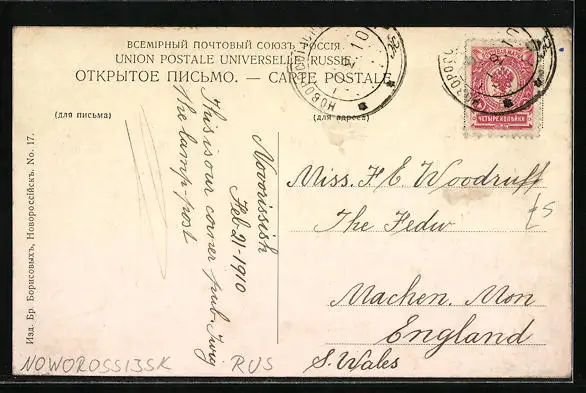 ВСЕМІРНЫЙ ПОЧТОВЫЙ СОЮЗЪ РОССІЯ.
UNION POSTALE UNIVERSELLE. RUSSIE.
ОТКРЫТОЕ ПИСЬМО. — CARTE POSTALE
(для письма)
(для адреса)
Novorissish
Feb-21-1910
This is our corner pub.
The lamp-post
Miss. F. E. Woodruff
The Fedw
Machen. Mon
England
S. Wales
ЧЕТЫРЕ КОПѢЙКИ
НОВОРОС
10
£5
Изд. Бр. Борисовыхъ, Новороссійскъ. No. 17.
NOWOROSSIJSK RUS